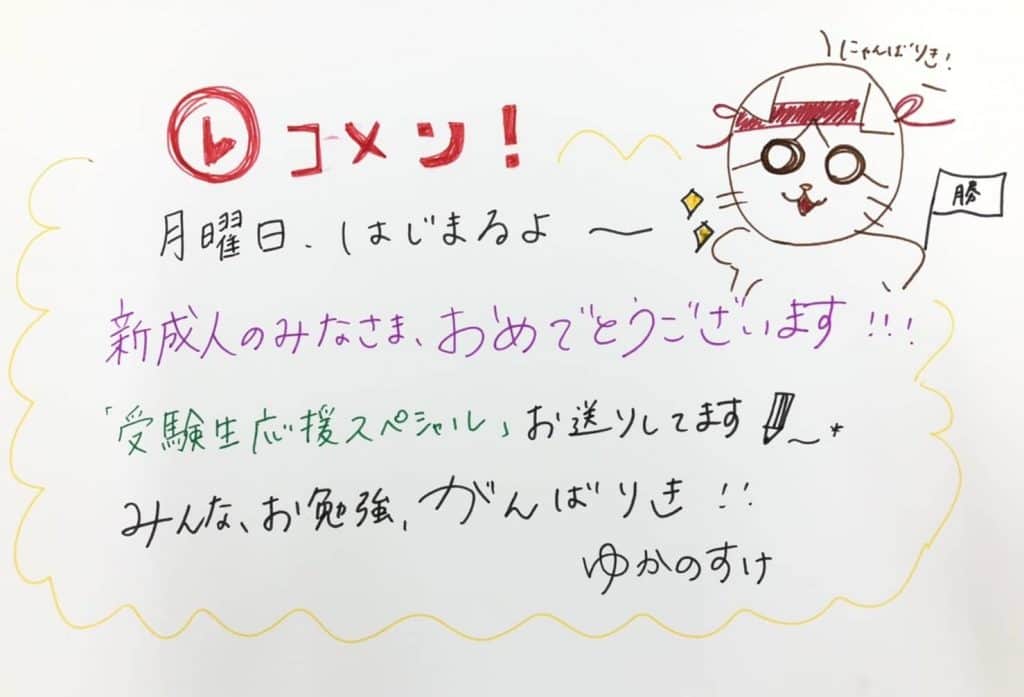 レコメン!
にゃんばりき!
勝
月曜日、はじまるよ〜
新成人のみなさま、おめでとうございます!!!
「受験生応援スペシャル」お送りしてます
みんな、お勉強、がんばりき!!
ゆかのすけ